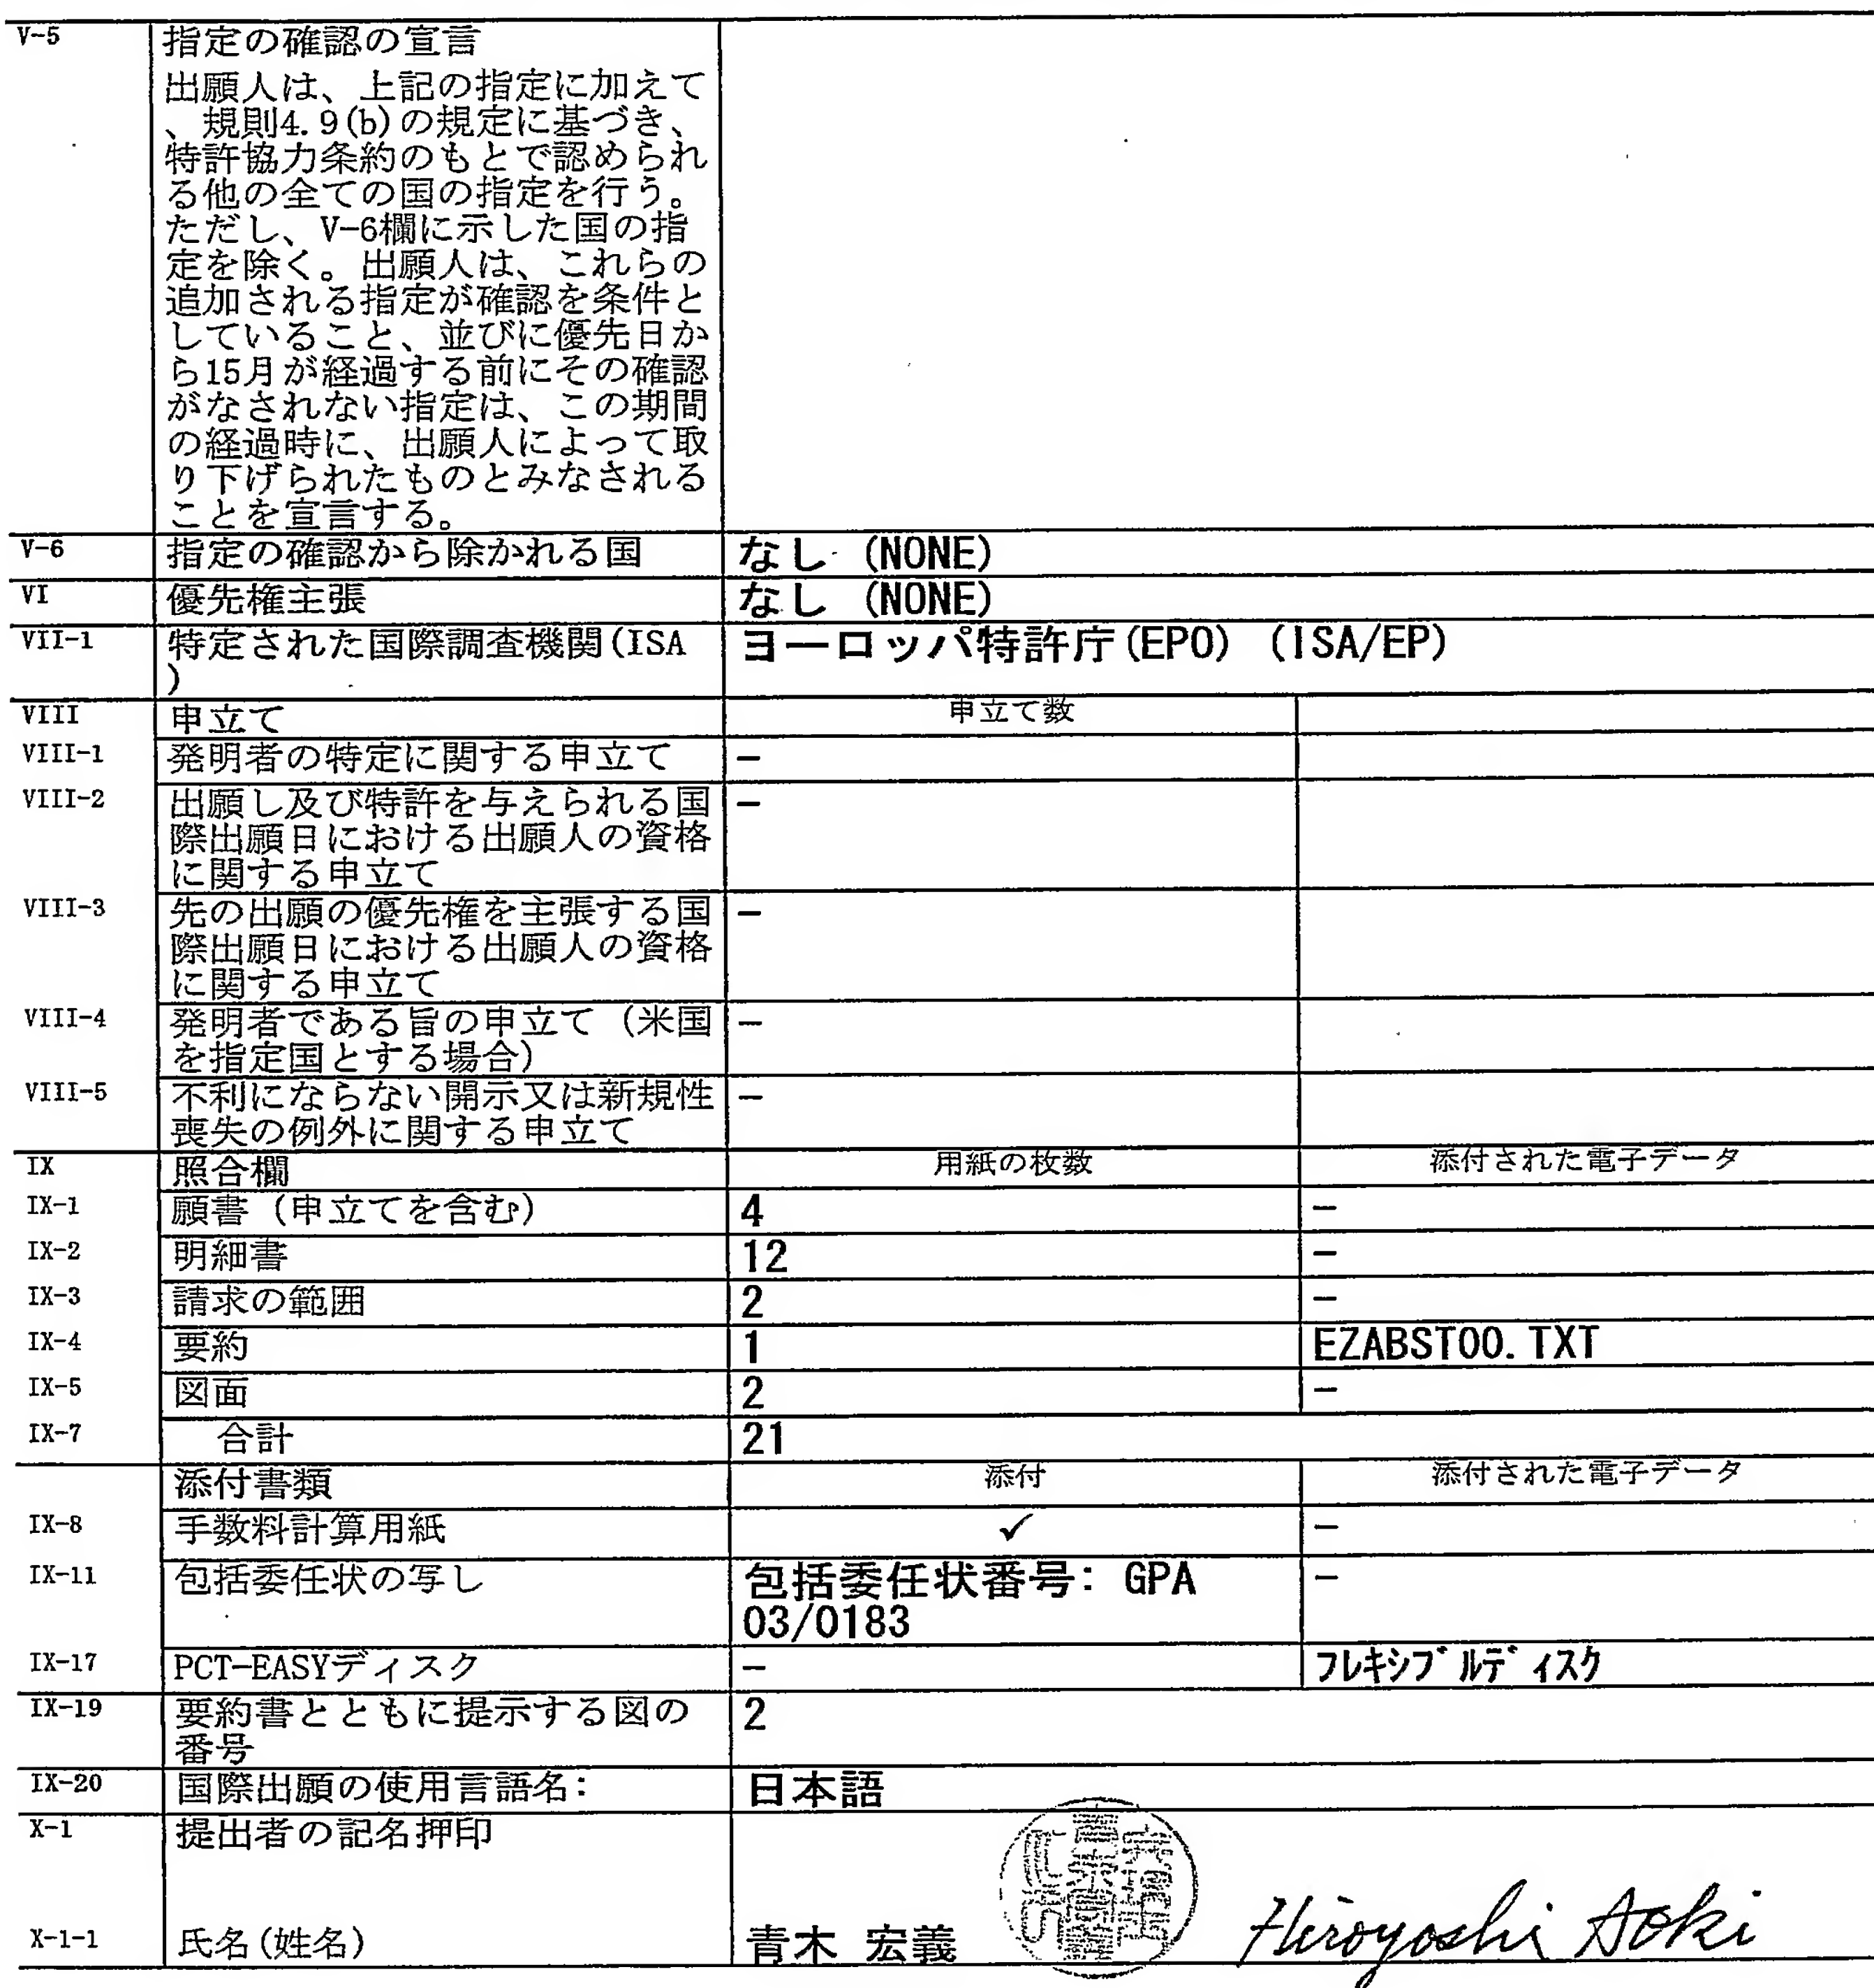 V-5 指定の確認の宣言
出願人は、上記の指定に加えて
、規則4.9(b)の規定に基づき、
特許協力条約のもとで認められ
る他の全ての国の指定を行う。
ただし、V-6欄に示した国の指
定を除く。出願人は、これらの
追加される指定が確認を条件と
していること、並びに優先日か
ら15月が経過する前にその確認
がなされない指定は、この期間
の経過時に、出願人によって取
り下げられたものとみなされる
ことを宣言する。
V-6 指定の確認から除かれる国 なし (NONE)
VI 優先権主張 なし (NONE)
VII-1 特定された国際調査機関(ISA ヨーロッパ特許庁(EPO) (ISA/EP)
)
VIII 申立て 申立て数
VIII-1 発明者の特定に関する申立て -
VIII-2 出願し及び特許を与えられる国 -
際出願日における出願人の資格
に関する申立て
VIII-3 先の出願の優先権を主張する国 -
際出願日における出願人の資格
に関する申立て
VIII-4 発明者である旨の申立て（米国 -
を指定国とする場合）
VIII-5 不利にならない開示又は新規性 -
喪失の例外に関する申立て
IX 照合欄 用紙の枚数 添付された電子データ
IX-1 願書（申立てを含む） 4 -
IX-2 明細書 12 -
IX-3 請求の範囲 2 -
IX-4 要約 1 EZABST00.TXT
IX-5 図面 2 -
IX-7 合計 21
添付書類 添付 添付された電子データ
IX-8 手数料計算用紙 ✓ -
IX-11 包括委任状の写し 包括委任状番号: GPA -
03/0183
IX-17 PCT-EASYディスク - ﾌﾚｷｼﾌﾞﾙﾃﾞｨｽｸ
IX-19 要約書とともに提示する図の 2
番号
IX-20 国際出願の使用言語名: 日本語
X-1 提出者の記名押印
X-1-1 氏名(姓名) 青木 宏義 Hiroyoshi Aoki